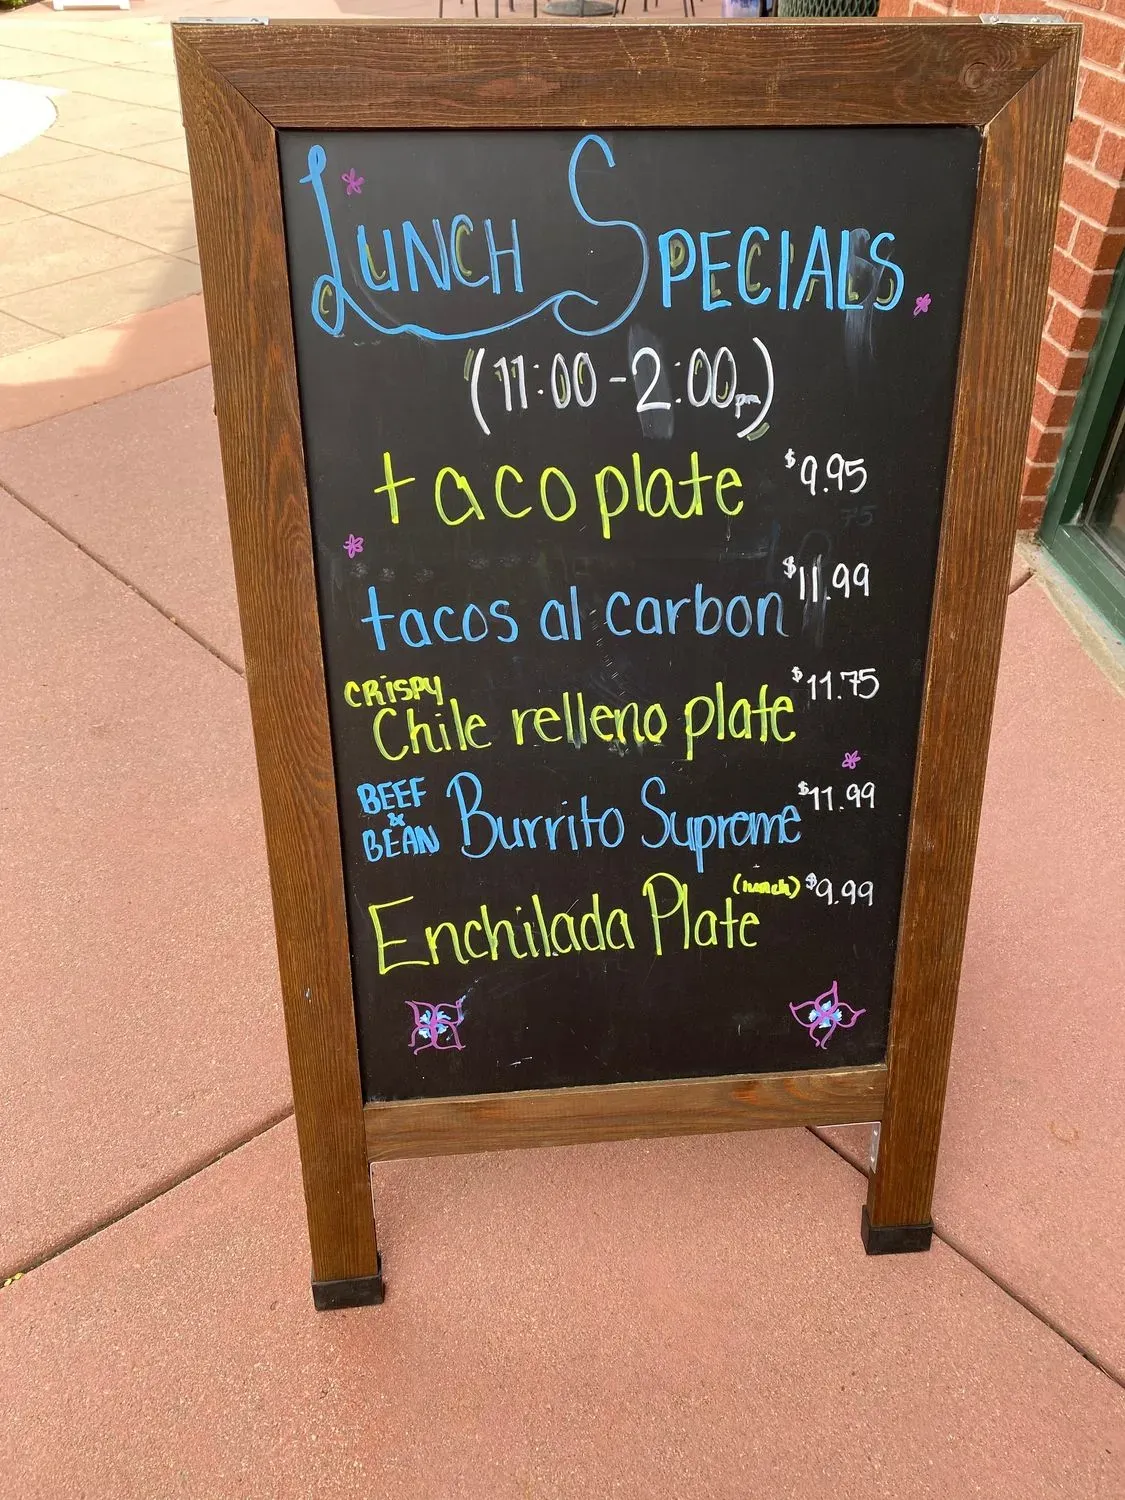 Lunch Specials
(11:00-2:00pm)
taco plate $9.95
tacos al carbon $11.99
CRISPY
Chile relleno plate $11.75
BEEF & BEAN Burrito Supreme $11.99
Enchilada Plate (lunch) $9.99